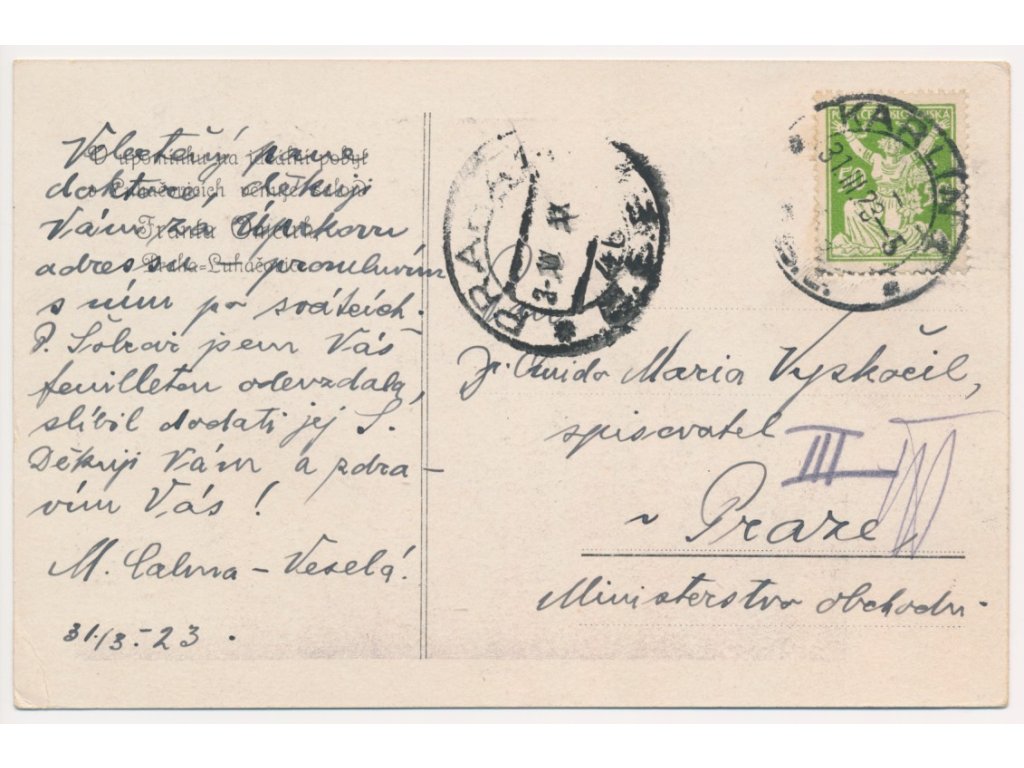 Velectěný pane
doktore, děkuji
Vám za Úprkovu
adressu, promluvím
s ním po svátcích.
P. Šolcar jsem Váš
feuilleton odevzdala,
slíbil dodati jej S.
Děkuji Vám a zdra-
vím Vás!
M. Calma-Veselá.
31./3.-23.
Praha-Luhačovice
PRAHA
KARLÍN 1
31.III.23
Dr. Quido Maria Vyskočil,
spisovatel
III
v Praze
Ministerstvo obchodu.